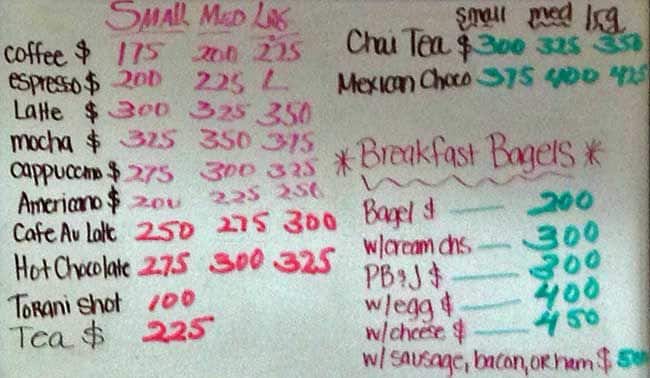 Small Med Lrg
coffee $ 175 200 225
espresso $ 200 225 L
Latte $ 300 325 350
mocha $ 325 350 375
cappuccino $ 275 300 325
Americano $ 200 225 250
Cafe Au Latte 250 275 300
Hot Chocolate 275 300 325
Torani shot 100
Tea $ 225
small med lrg
Chai Tea $ 300 325 350
Mexican Choco 375 400 425
* Breakfast Bagels *
Bagel $ — 200
w/cream chs — 300
PB&J $ — 300
w/egg $ — 400
w/cheese $ — 450
w/ sausage, bacon, or ham $